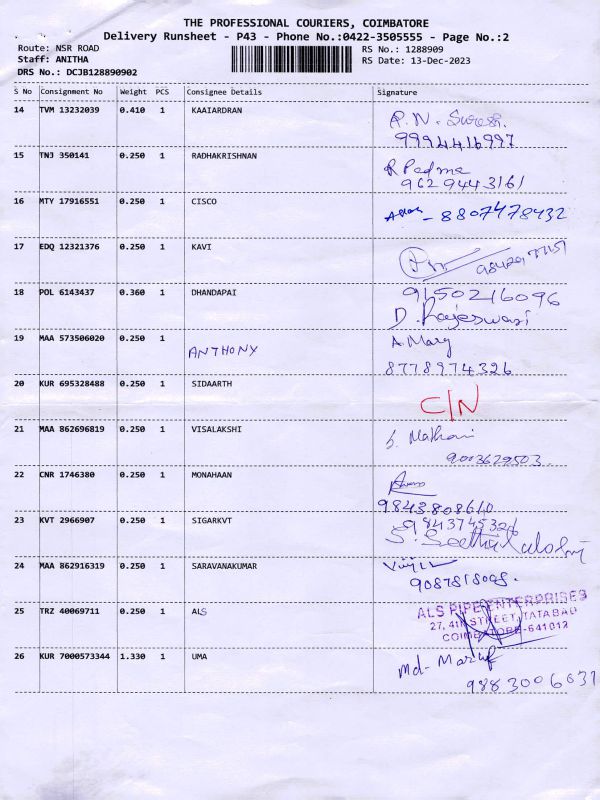 THE PROFESSIONAL COURIERS, COIMBATORE
Delivery Runsheet - P43 - Phone No.:0422-3505555 - Page No.:2
Route: NSR ROAD
RS No.: 1288909
Staff: ANITHA
RS Date: 13-Dec-2023
DRS No.: DCJB128890902
S No Consignment No Weight PCS Consignee Details Signature
14 TVM 13232039 0.410 1 KAAIARDRAN
9994416997
15 TNJ 350141 0.250 1 RADHAKRISHNAN R Padma
9629443161
16 MTY 17916551 0.250 1 CISCO - 8807478432
17 EDQ 12321376 0.250 1 KAVI
18 POL 6143437 0.360 1 DHANDAPAI 9150216096
D. Rajeswari
19 MAA 573506020 0.250 1 ANTHONY A. Mary
8778974326
20 KUR 695328488 0.250 1 SIDAARTH C/N
21 MAA 862696819 0.250 1 VISALAKSHI
9003629503.
22 CNR 1746380 0.250 1 MONAHAAN
9843808610
23 KVT 2966907 0.250 1 SIGARKVT 9843745326
24 MAA 862916319 0.250 1 SARAVANAKUMAR
25 TRZ 40069711 0.250 1 ALS ALS PIPE ENTERPRISES
27, 4th STREET, TATABAD
COIMBATORE-641012
26 KUR 7000573344 1.330 1 UMA Md- Maruf
9883006031